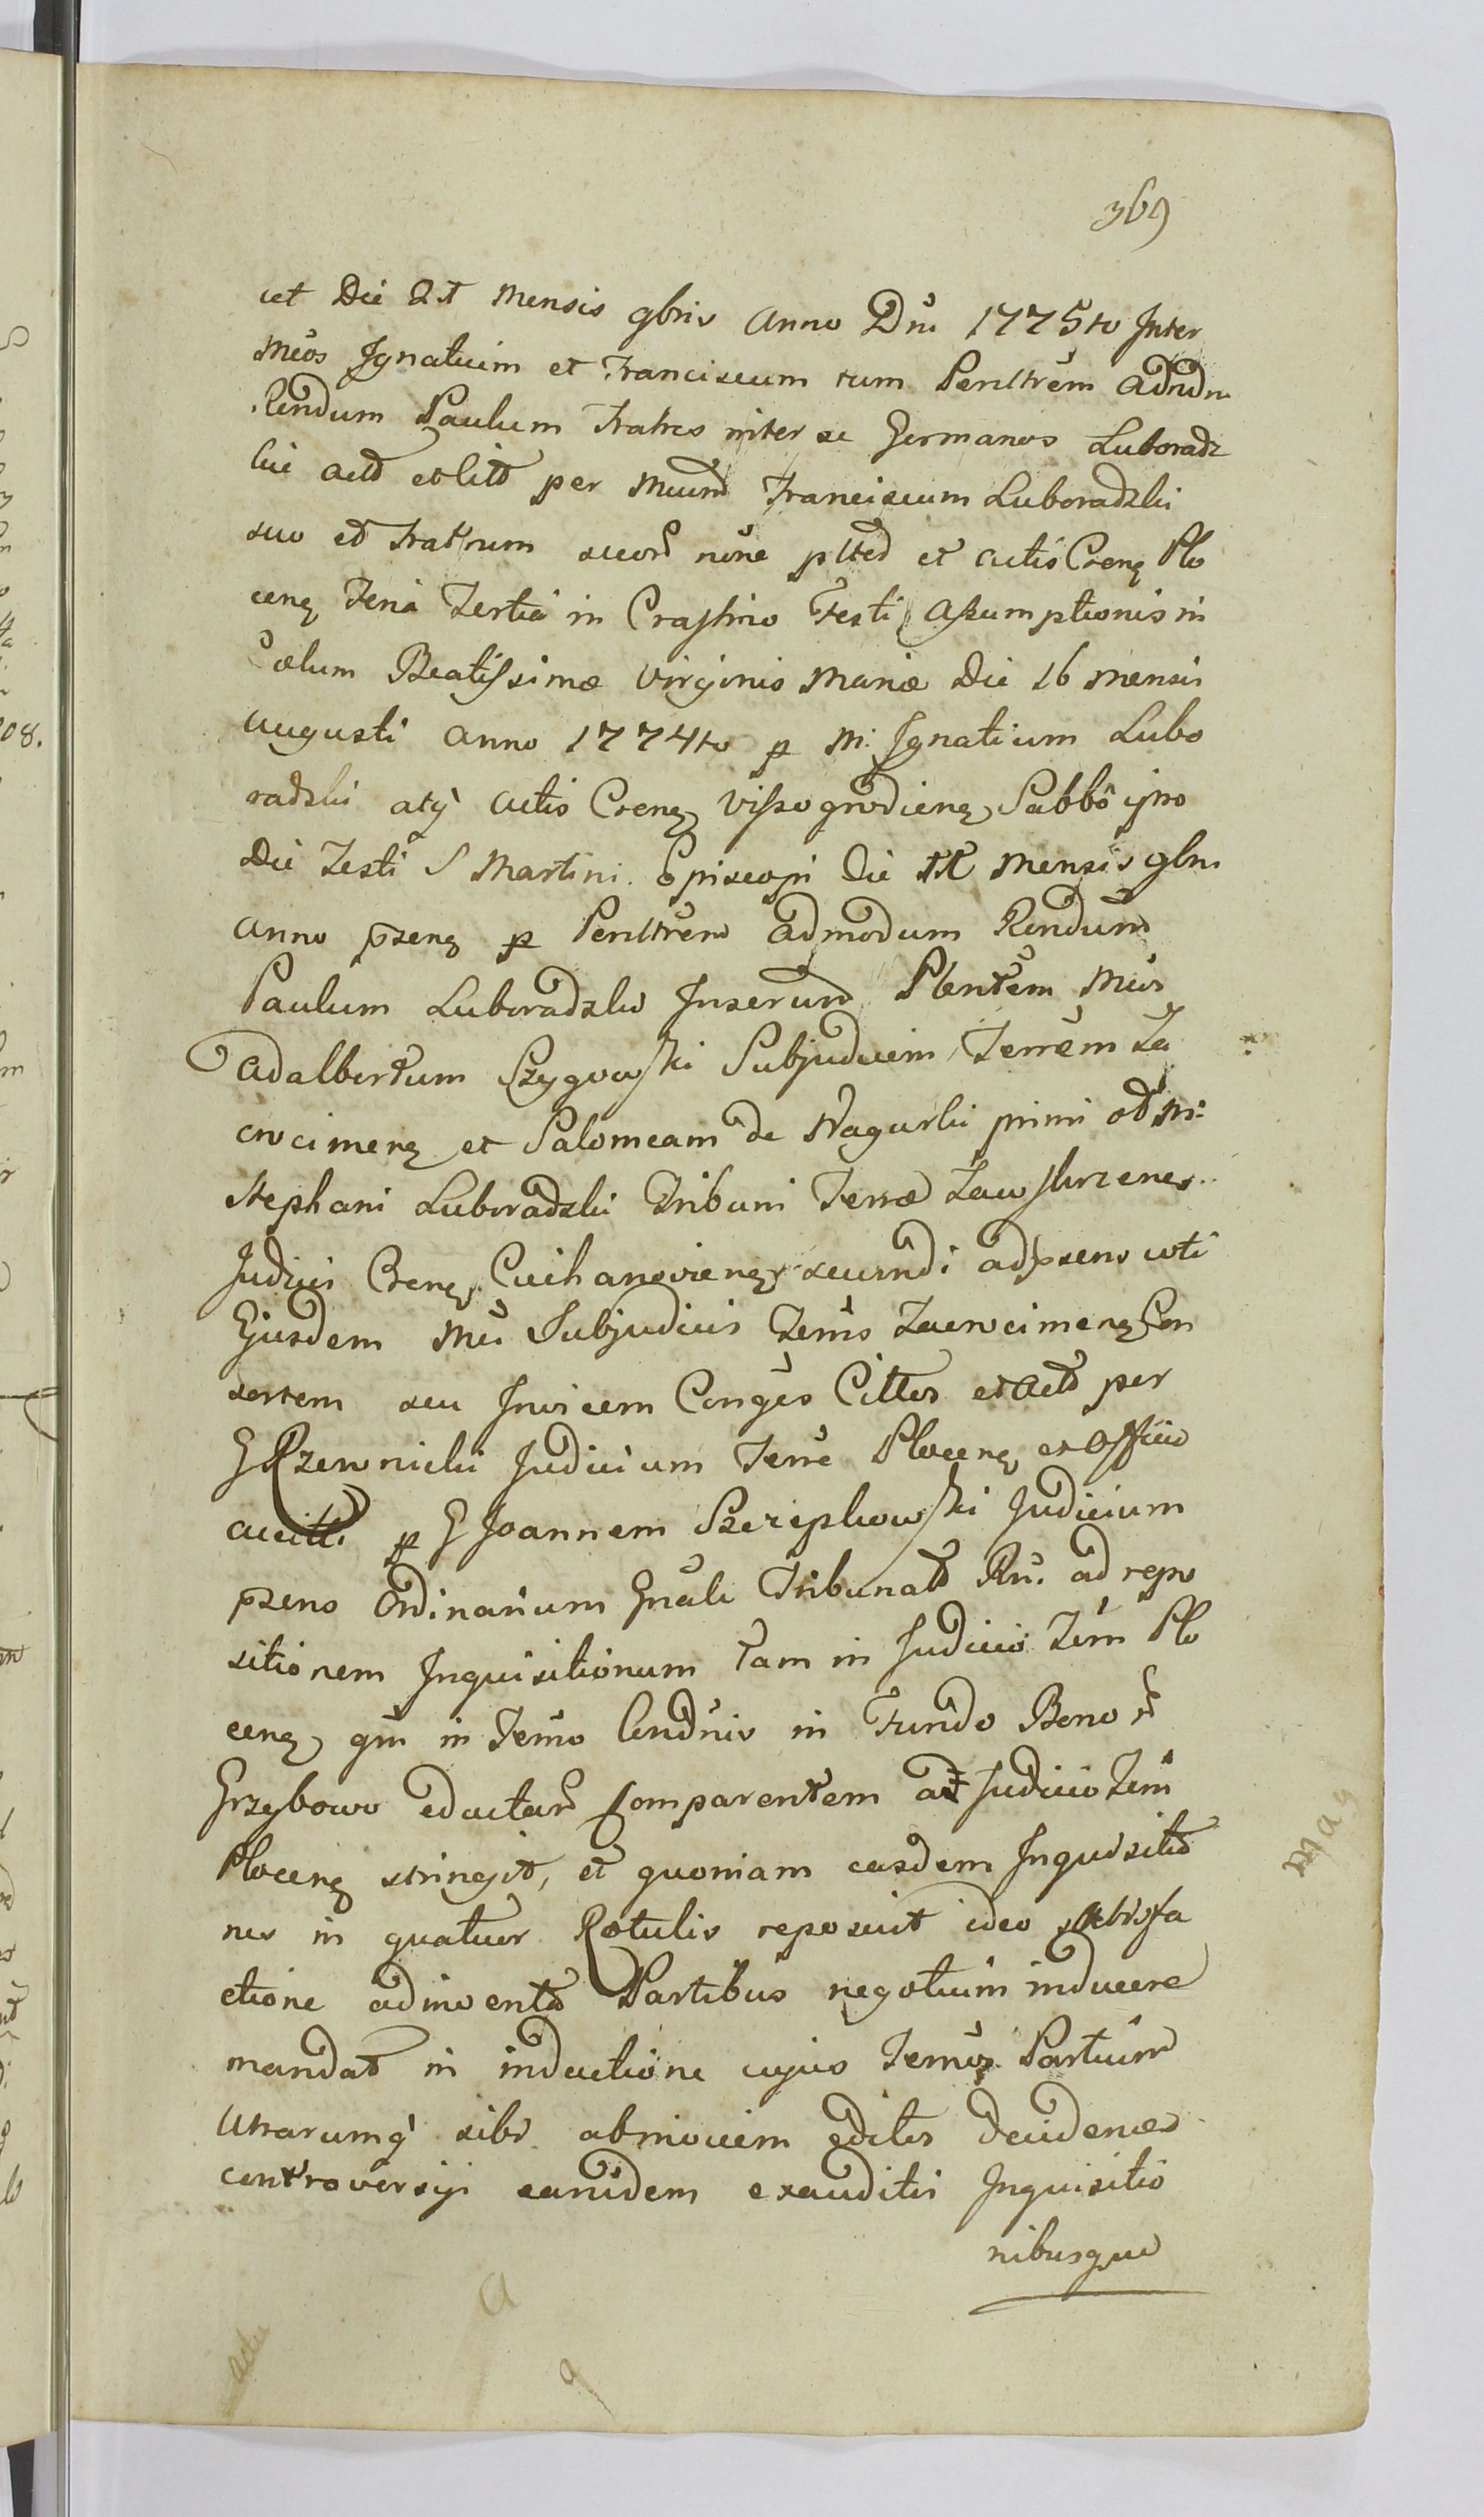 369
et Die 21 Mensis 9bris Anno Dni 1775to Inter
Mcos Ignatium et Franciscum tum Perillrem Admdm
Rendum Paulum Fratres inter se Germanos Luboradz
ki act et litt per Mcum Franciscum Luboradzki
suo et Fratrum suor noie plted et actis Crens Plo
cens Feria Tertia in Crastino Festi Assumptionis in
Cœlum Beatissimæ Virginis Mariæ Die 16 mensis
Augusti Anno 1774to p M: Ignatium Lubo
radzki atq actis Crens Vissogrodiens Sabbo ipso
Die Festi S Martini Episcopi Die 11 Mensis 9bris
Anno pzens p Perillrem Admodum Rendum
Paulum Luboradzki Inserum Plentem Mcus
Adalbertum Szygowski Subjudicem Terrem Za
crocimens et Salomeam de Nagurki primi ot M:
Stephani Luboradzki Tribuni Terræ Zawskrzenes
Judicis Crens Ciechanoviens secundi adpsens voti
Ejusdem Mci Subjudicis Terris Zacrocimens Con
sortem seu Invicem Conges Cittos et act per
G Rzewnicki Judicium Terre Plocens ex Officio
accitti p G Joannem Szczepkowski Judicium
pzens Ordinarium Gnale Tribunat Rni ad repo
sitionem Inquisitionum tam in Judicio Terri Plo
cens qm in Termo Condnis in Fundo Bonor
Grzybowo eductar Comparentem ad Judicio Terri
Plocens stringit, et quoniam easdem Inquisitio
nes in quatuor Rotulis reposuit ideo satisfa
ctione adinventa Partibus negotium inducere
mandat in inductione cujus Termi Partium
Utrarumq sibi abinvicem editis decidenæ
controversiji earundem exauditis Inquisitio
nibusque